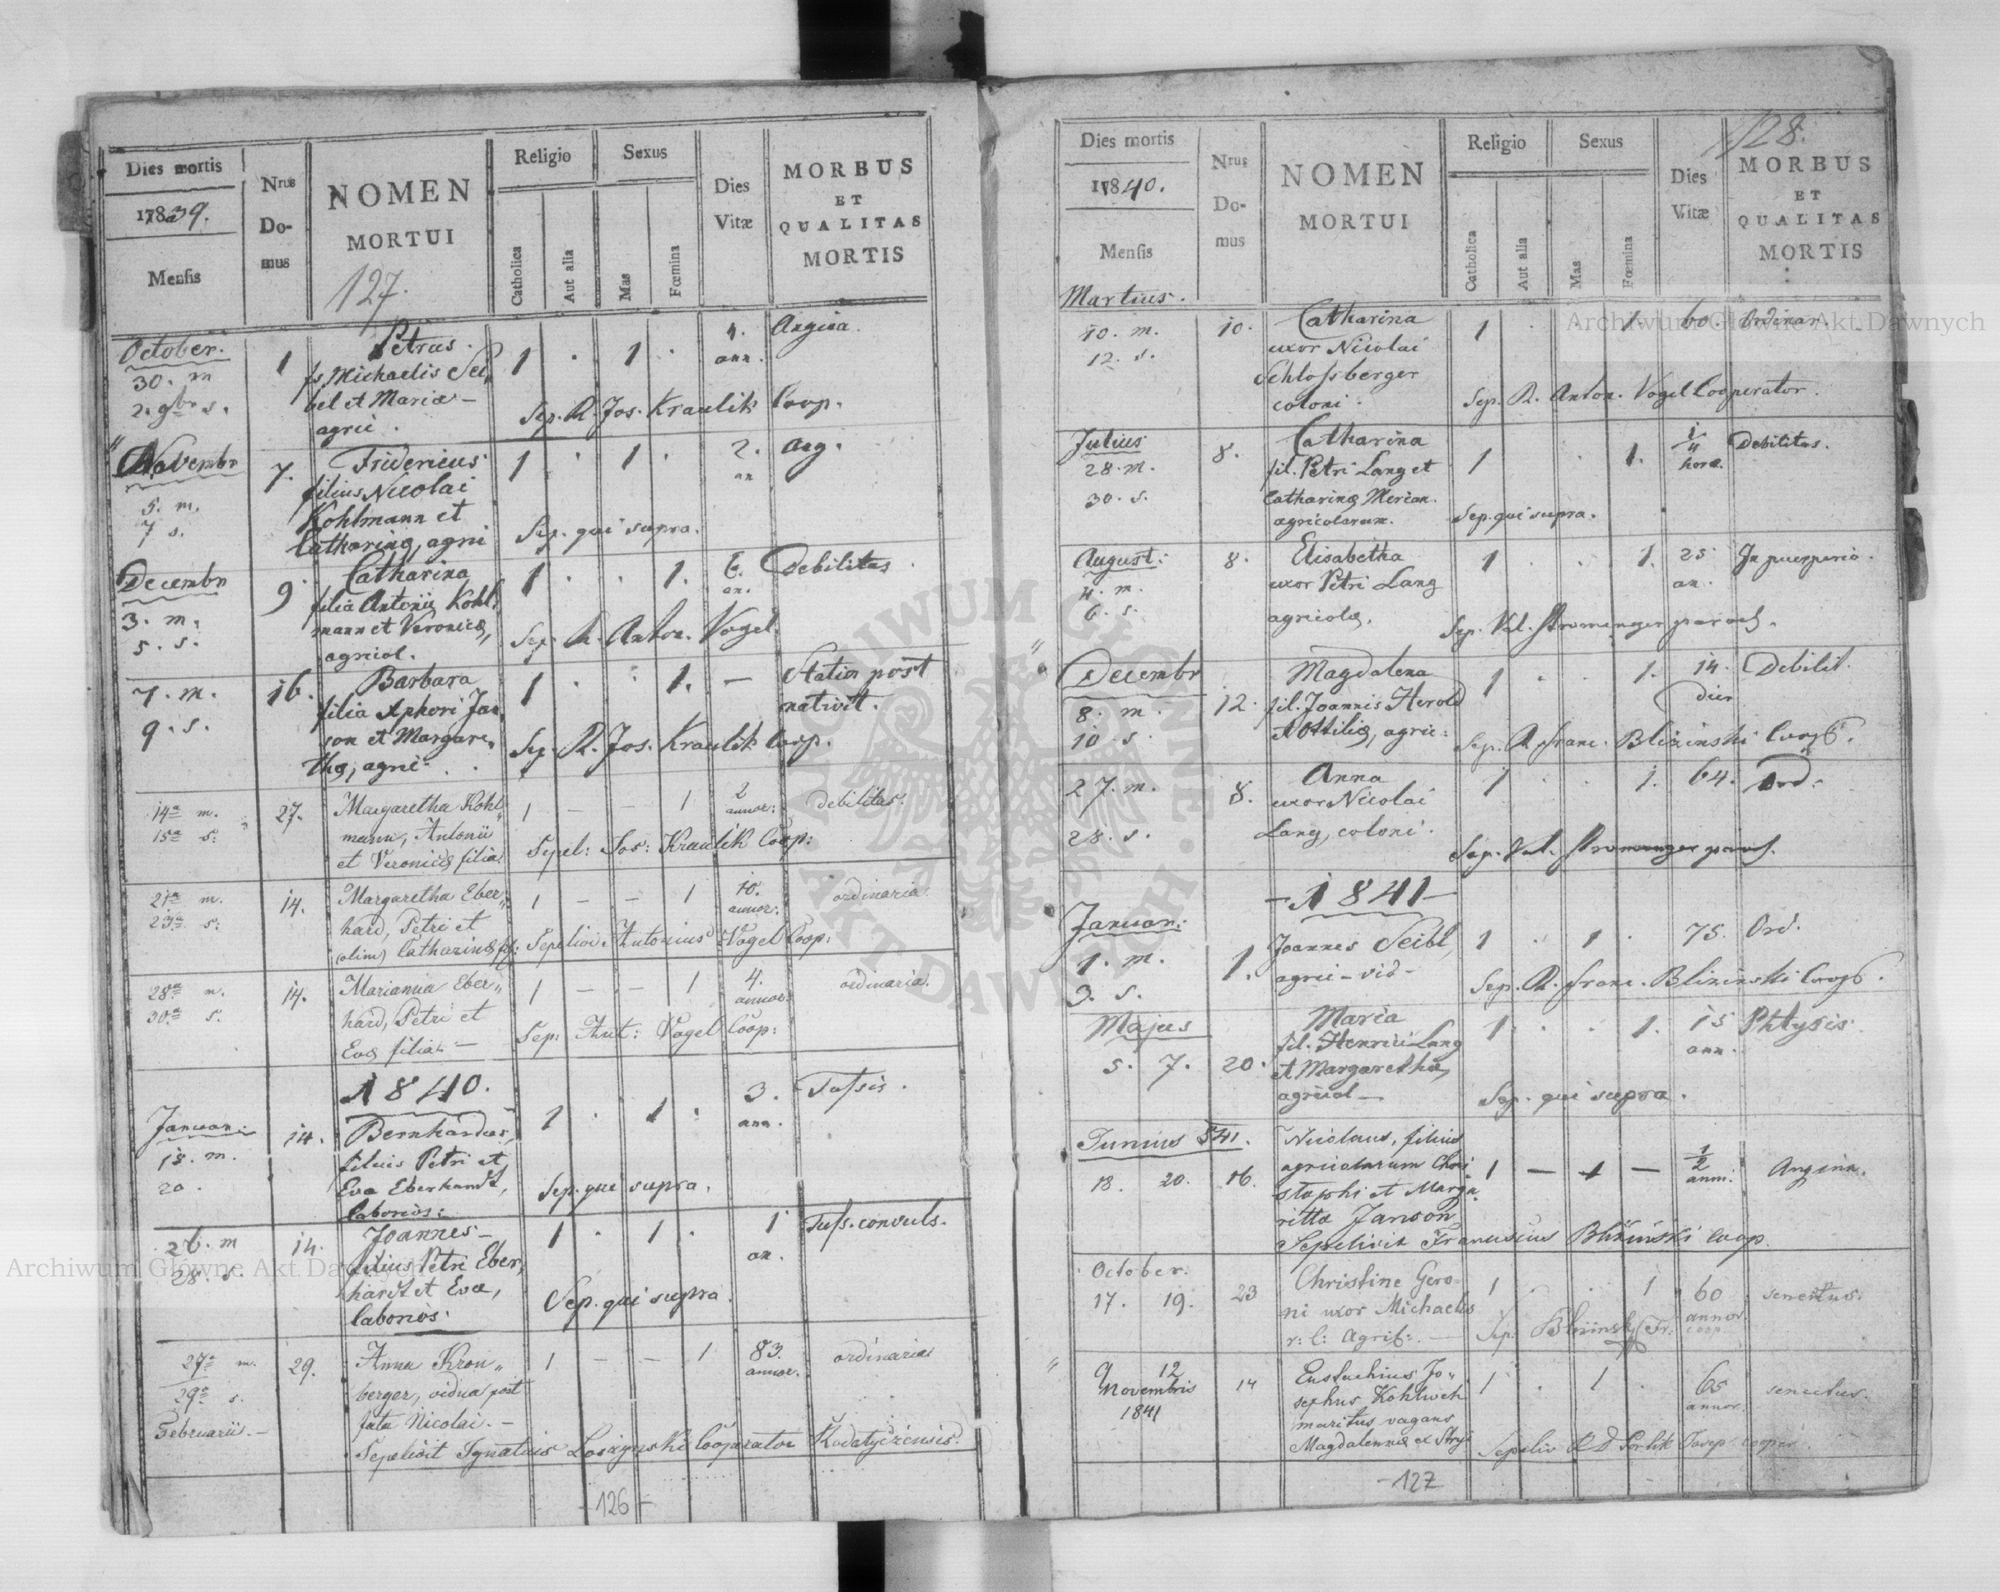 Dies mortis
1839.
Mensis
Nrus Domus
NOMEN
MORTUI
127.
Religio
Catholica
Aut alia
Sexus
Mas
Fœmina
Dies Vitæ
MORBUS
ET
QUALITAS
MORTIS
October. 1 Petrus. 1 . 1 . 4. Angina.
30. m fs Michaelis Sei ann.
2. 9br s. bel et Mariæ – Sep. R. Jos. Kraulik Coop.
agric.
Novembr 7. Fridericus 1 . 1 . 2. Ang.
5. m. filius Nicolai an
7 s. Kohlmann et
Catharinæ, agri Sep. qui supra.
Decembr 9 Catharina 1 . . 1. 6. Debilitas.
3. m. filia Antonii Kohl an.
5. s. mann et Veronicæ, Sep. R. Anton. Vogel
agricol.
7. m. 16. Barbara 1 . . 1. – Statim post
9. s. filia Xphori Jan nativit.
son et Margare Sep. R. Jos. Kraulik Coop.
thæ, agric.
14a m. 27. Margaretha Kohl 1 – – 1 2 debilitas.
15a s. mann, Antonii annor:
et Veronicæ filia. Sepel: Jos: Kraulik Coop:
21a m. 14. Margaretha Eber 1 – – 1 10. ordinaria
23a s: hard, Petri et annor:
(olim) Catharinæ fil: Sepelivi Antonius Vogel Coop:
28a m. 14. Marianna Eber 1 – – 1 4. ordinaria.
30a s. hard, Petri et annor:
Evæ filia. – Sep: Ant: Vogel Coop:
1840.
Januar: 14. Bernhardus, 1 . 1 . 3. Tussis.
18. m. filius Petri et ann.
20. Eva Eberhardt, Sep. qui supra.
laborios:
26. m 14. Joannes – 1 . 1 . 1 Tuss. convuls.
28. s. filius Petri Eber, an.
hardt et Evæ, Sep. qui supra.
laborios:
27a m. 29. Anna Kron 1 – – 1 83. ordinaria
29a s. berger, vidua post annor.
Februarii. – fata Nicolai. –
Sepelivit Ignatius Losaynski Cooperator Kodatyczensis.
– 126 –
128.
Dies mortis
1840.
Mensis
Nrus Domus
NOMEN
MORTUI
Religio
Catholica
Aut alia
Sexus
Mas
Fœmina
Dies Vitæ
MORBUS
ET
QUALITAS
MORTIS
Martius.
10. m. 10. Catharina 1 . . 1. 60. Ordinar.
12. s. uxor Nicolai
Schlossberger
coloni. Sep. R. Anton. Vogel Cooperator.
Julius 8. Catharina 1 . . 1. 1/4 Debilitas.
28. m. fil. Petri Lang et horæ
30. s. Catharinæ Merian.
agricolarum. Sep. qui supra.
August: 8. Elisabetha 1 . . 1. 25 In puerperio.
4. m. uxor Petri Lang an.
6. s. agricolæ. Sep. Val. Stromenger paroch.
Decembr 12. Magdalena 1 . . 1. 14. Debilit.
8. m. fil. Joannis Herold dier
10. s. & Ottiliæ, agric: Sep. R. Franc. Blizinski Coop.
27. m. 8. Anna 1 . . 1. 64. Ord.
28. s. uxor Nicolai
Lang, coloni. Sep. Val. Stromenger paroch.
– 1841 –
Januar: 1. Joannes Seibl, 1 . 1 . 75. Ord.
1. m. agric – vid –
3. s. Sep. R. Franc. Blizinski Coop.
Majus Maria 1 . . 1. 15 Phtysis
5. 7. 20. fil. Henrici Lang ann.
et Margarethæ,
agricol – Sep. qui supra.
Junius 841. Nicolaus, filius
18. 20. 16. agricolarum Chri 1 – 1 – 1/2 Angina.
stophi et Marga anni.
rittæ Janson
Sepelivit Franciscus Bliziński Coop.
October. 23 Christine Gero 1 . . 1 60 senectus.
17. 19. ni uxor Michaelis annor
r: l: Agric:. – Sep: Bliziński Fr: coop.
9 12 14 Eustachius Jo 1 . 1 . 65 senectus.
Novembris sephus Kohlweh annor.
1841 maritus vagans
Magdalennæ ex Stryi Sepeliv R D Josep cooper.
– 127
Archiwum Główne Akt Dawnych
Archiwum Główne Akt Dawnych
ARCHIWUM GŁÓWNE AKT DAWNYCH